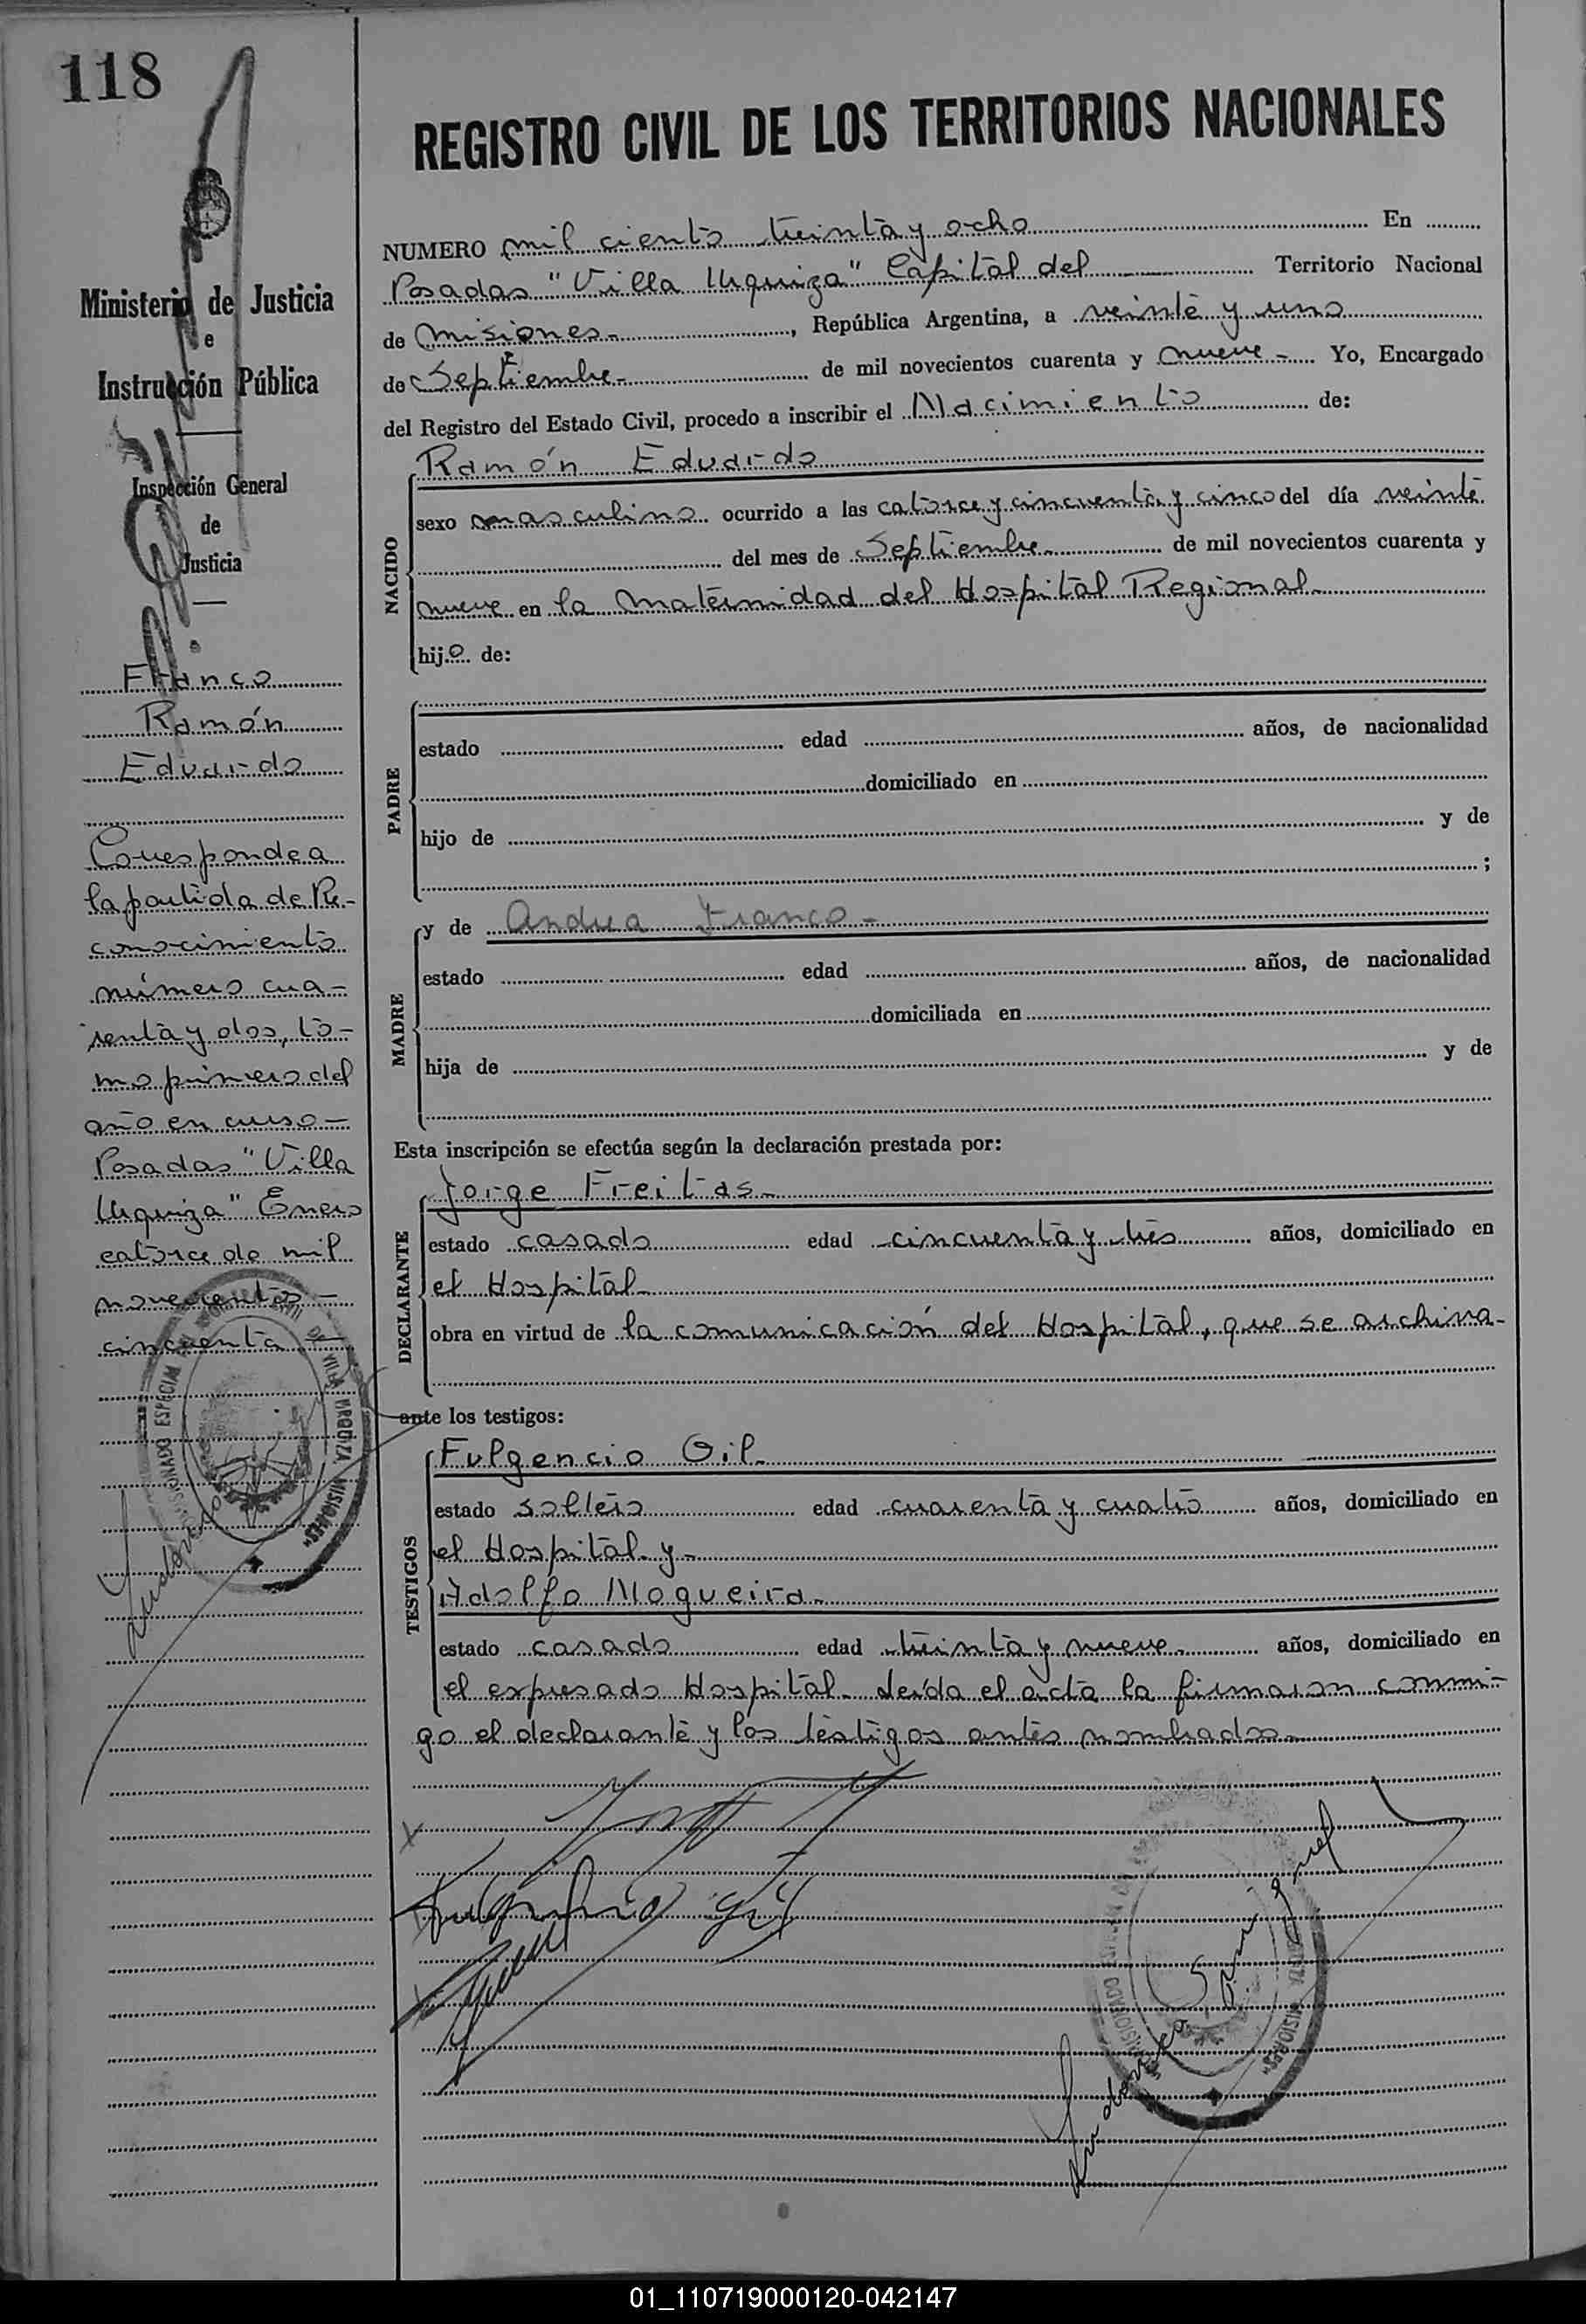 118
REGISTRO CIVIL DE LOS TERRITORIOS NACIONALES
Ministerio de Justicia
e
Instrucción Pública
Inspección General
de
Justicia
Franco
Ramón
Eduardo
Corresponde a
la partida de Re-
conocimiento
número cua-
renta y dos, to-
mo primero del
año en curso-
Posadas "Villa
Urquiza" Enero
catorce de mil
novecientos-
cincuenta
NUMERO mil ciento treinta y ocho En
Posadas "Villa Urquiza" Capital del Territorio Nacional
de Misiones-, República Argentina, a veinte y uno
de Septiembre- de mil novecientos cuarenta y nueve- Yo, Encargado
del Registro del Estado Civil, procedo a inscribir el Nacimiento de:
NACIDO
Ramón Eduardo
sexo masculino ocurrido a las catorce y cincuenta y cinco del día veinte
del mes de Septiembre- de mil novecientos cuarenta y
nueve en la Maternidad del Hospital Regional-
hijo de:
PADRE
estado edad años, de nacionalidad
domiciliado en
hijo de y de
;
MADRE
y de Andrea Franco-
estado edad años, de nacionalidad
domiciliada en
hija de y de
Esta inscripción se efectúa según la declaración prestada por:
DECLARANTE
Jorge Freitas-
estado casado edad cincuenta y tres años, domiciliado en
el Hospital-
obra en virtud de la comunicación del Hospital, que se archiva-
ante los testigos:
TESTIGOS
Fulgencio Gil-
estado soltero edad cuarenta y cuatro años, domiciliado en
el Hospital y-
Adolfo Nogueira-
estado casado edad treinta y nueve- años, domiciliado en
el expresado Hospital- Leída el acta la firmaron conmi-
go el declarante y los testigos antes nombrados-
Fulgencio Gil
VILLA URQUIZA MISIONES
01_110719000120-042147